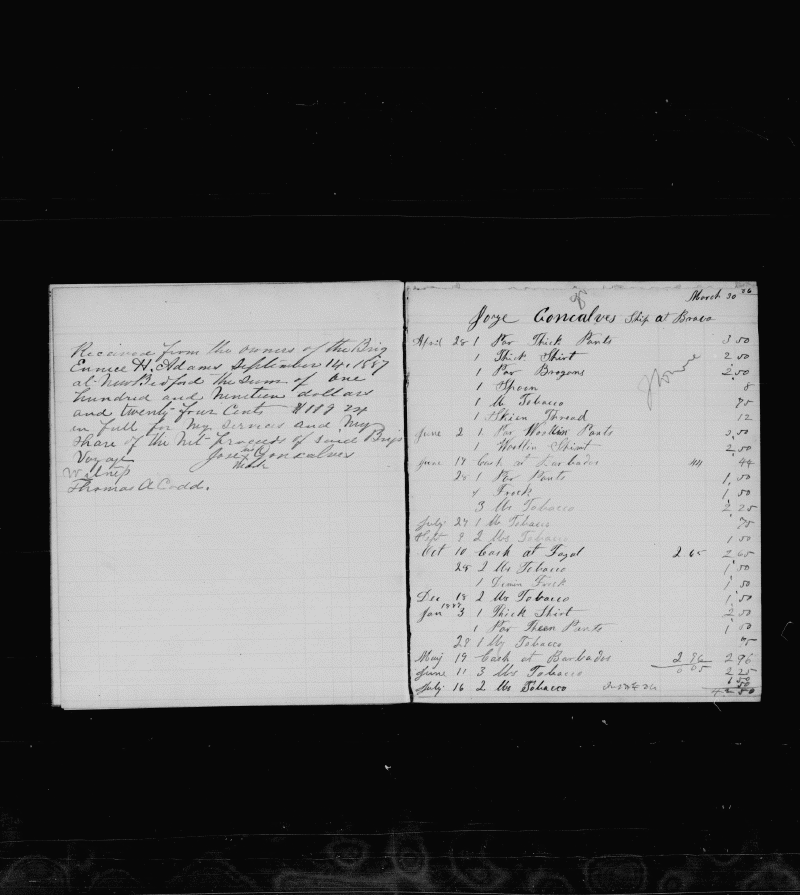 Received from the owners of the Brig
Eunice H. Adams September 14. 1887
at New Bedford the sum of one
hundred and nineteen dollars
and twenty four cents $119 24
in full for my services and my
share of the net proceeds of said Brigs
Voyage Jose his X Gonsalves
mark
Witness
Thomas A Codd.
March 30 86
Jorge Goncalves Ship at Brava
April 28 1 Par Thick Pants 3 50
1 Thick Shirt 2 50
1 Par Brogans 2 50
1 Spoon 8
1 lb Tobacco 75
1 Skien Thread 12
June 2 1 Par Woollin Pants 3 50
1 Woollin Shirt 2 50
June 19 Cash at Barbados 44 44
28 1 Par Pants 1 50
1 Frock 1 50
3 lbs Tobacco 2 25
July 27 1 lb Tobacco 75
Sept 9 2 lbs Tobacco 1 50
Oct 10 Cash at Fayal 2 65 2 65
28 2 lbs Tobacco 1 50
1 Denim Frock 1 50
Dec 18 2 lbs Tobacco 1 50
1887
Jan 3 1 Thick Shirt 2 50
1 Par Theen Pants 1 50
29 1 lb Tobacco 75
May 19 Cash at Barbados 2 96 2 96
June 11 3 lbs Tobacco 6 05 2 25
July 16 2 lbs Tobacco 1 50